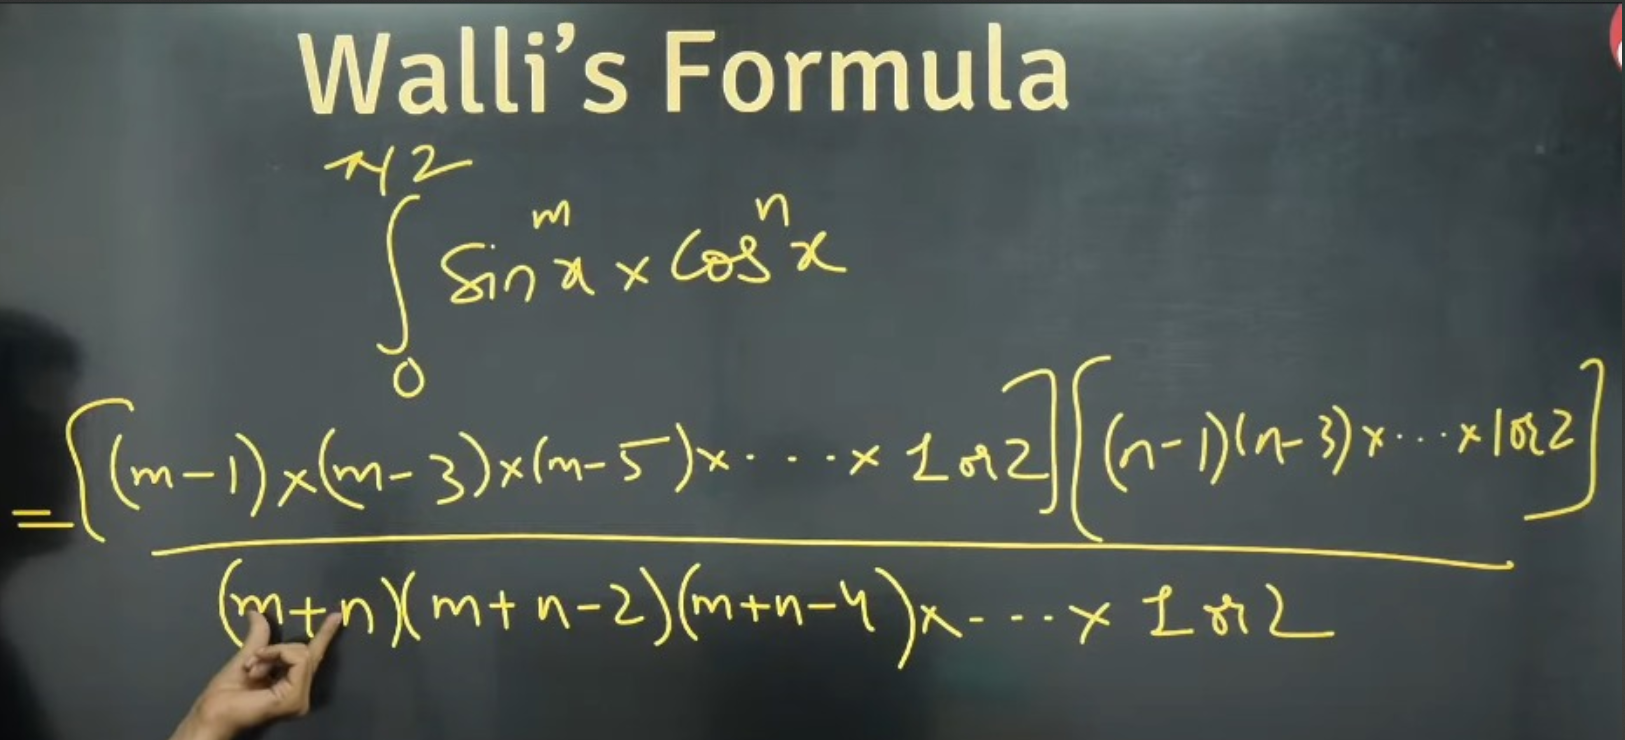 Walli's Formula
π/2
∫ sin^m x × cos^n x
0
= [(m-1)×(m-3)×(m-5)×....× 1 or 2] [(n-1)(n-3)×....×1 or 2]
(m+n)(m+n-2)(m+n-4)×----× 1 or 2